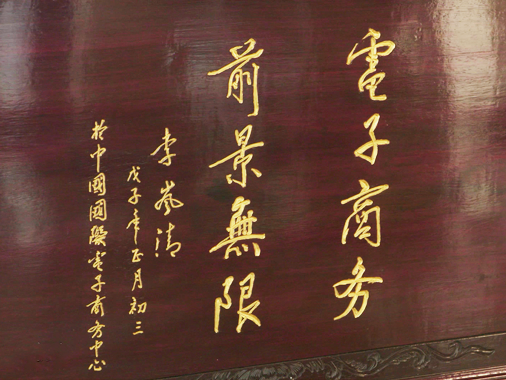 電子商务
前景無限
李岚清
戊子年正月初三
於中國國際电子商务中心